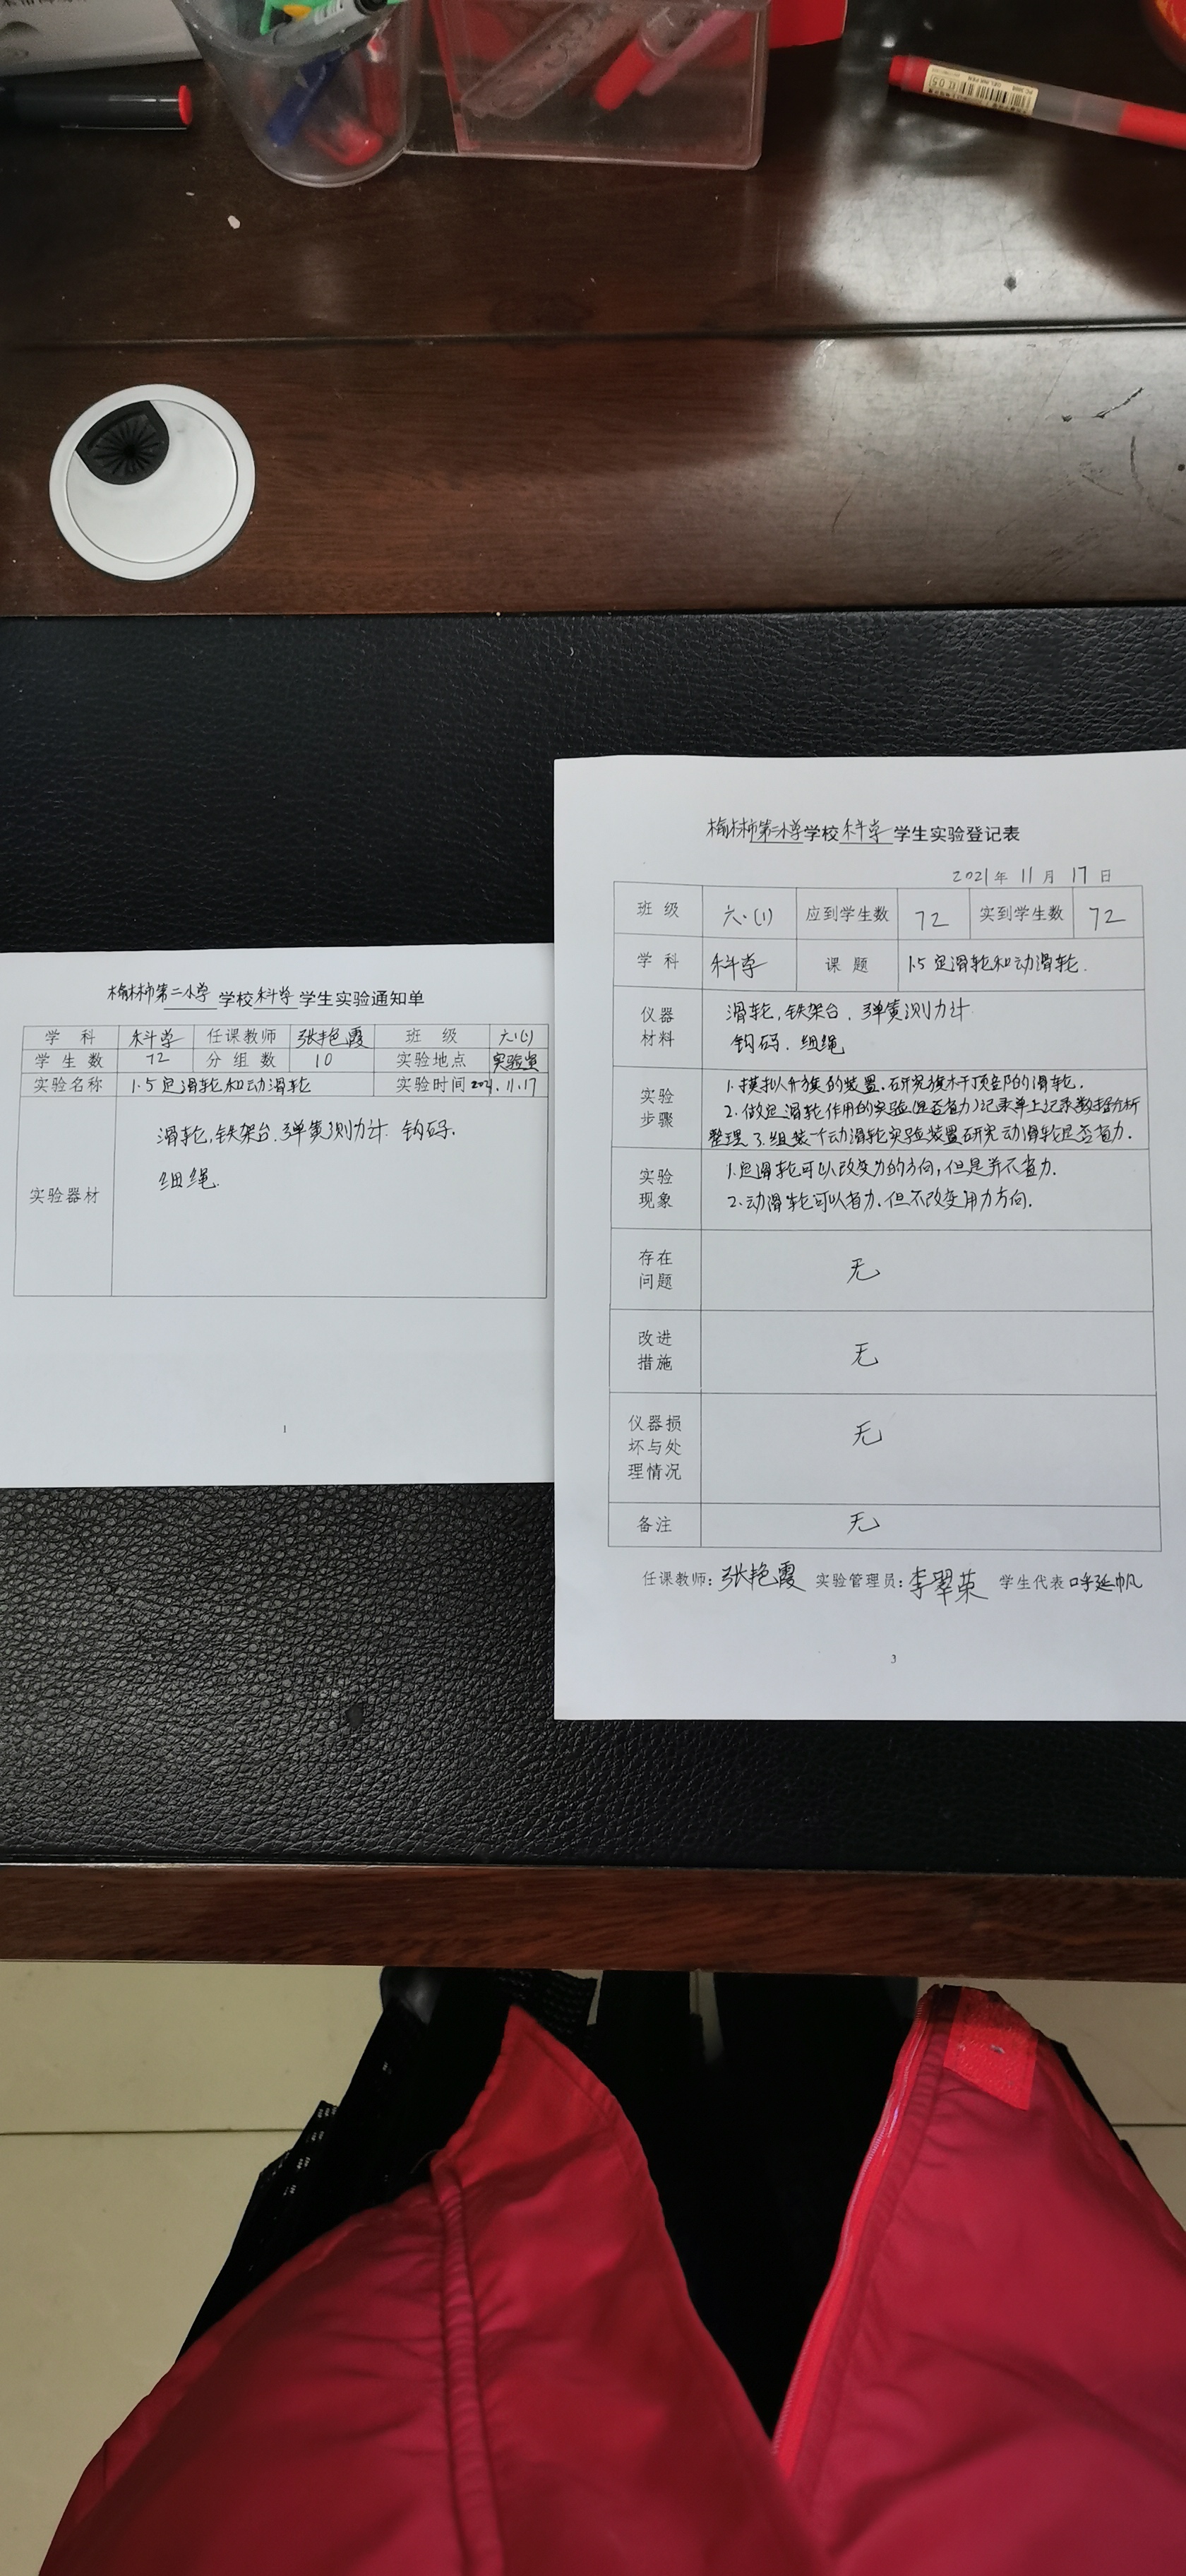 榆林市第二小学学校科学学生实验通知单
学科 科学 任课教师 张艳霞 班级 六.(1)
学生数 72 分组数 10 实验地点 实验室
实验名称 1.5定滑轮和动滑轮 实验时间 2021.11.17
实验器材
滑轮,铁架台.弹簧测力计 钩码.
细绳.
1
榆林市第二小学学校科学学生实验登记表
2021年11月17日
班级 六.(1) 应到学生数 72 实到学生数 72
学科 科学 课题 1.5定滑轮和动滑轮.
仪器材料
滑轮,铁架台.弹簧测力计
钩码.细绳
实验步骤
1.模拟升旗的装置.研究旗杆顶部的滑轮.
2.做定滑轮作用的实验(是否省力)记录单上记录数据分析
整理 3.组装一个动滑轮实验装置研究动滑轮是否省力.
实验现象
1.定滑轮可以改变力的方向,但是并不省力.
2.动滑轮可以省力.但不改变用力方向.
存在问题 无
改进措施 无
仪器损坏与处理情况 无
备注 无
任课教师:张艳霞 实验管理员:李翠荣 学生代表呼延帆
3